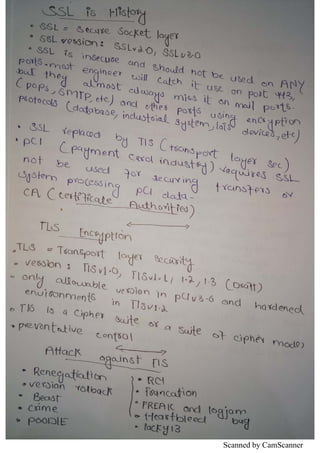 SSL is History
• SSL = Secure Socket layer
• SSL version: SSLv2.0, SSLv3.0
• SSL is insecure and should not be used on ANY
ports. most engineer will catch it use on port 443,
but they almost always miss it on mail ports.
(pops, SMTP, etc) and other ports using encryption
protocols (database, industrial system, IoTs devices, etc)
• SSL replaced by TLS (transport layer sec)
• PCI (payment card industry) requires SSL
not be used for securing transfers or
system processing PCI data.
CA (certificate Authorities)
TLS Encryption
• TLS = Transport layer security
- version : TLSv1.0, TLSv1.1, 1.2, 1.3 (Draft)
- only allowable version in PCI v3.0 and hardened
environments in TLSv1.2
• TLS is a cipher suite or a suite of cipher modes
• preventative control
Attack against TLS
• Renegatiation
• version rollback
• Beast
• crime
• POODLE
• RC4
• Truncation
• FREAK and logjam
• Heartbleed bug
• lucky13
Scanned by CamScanner